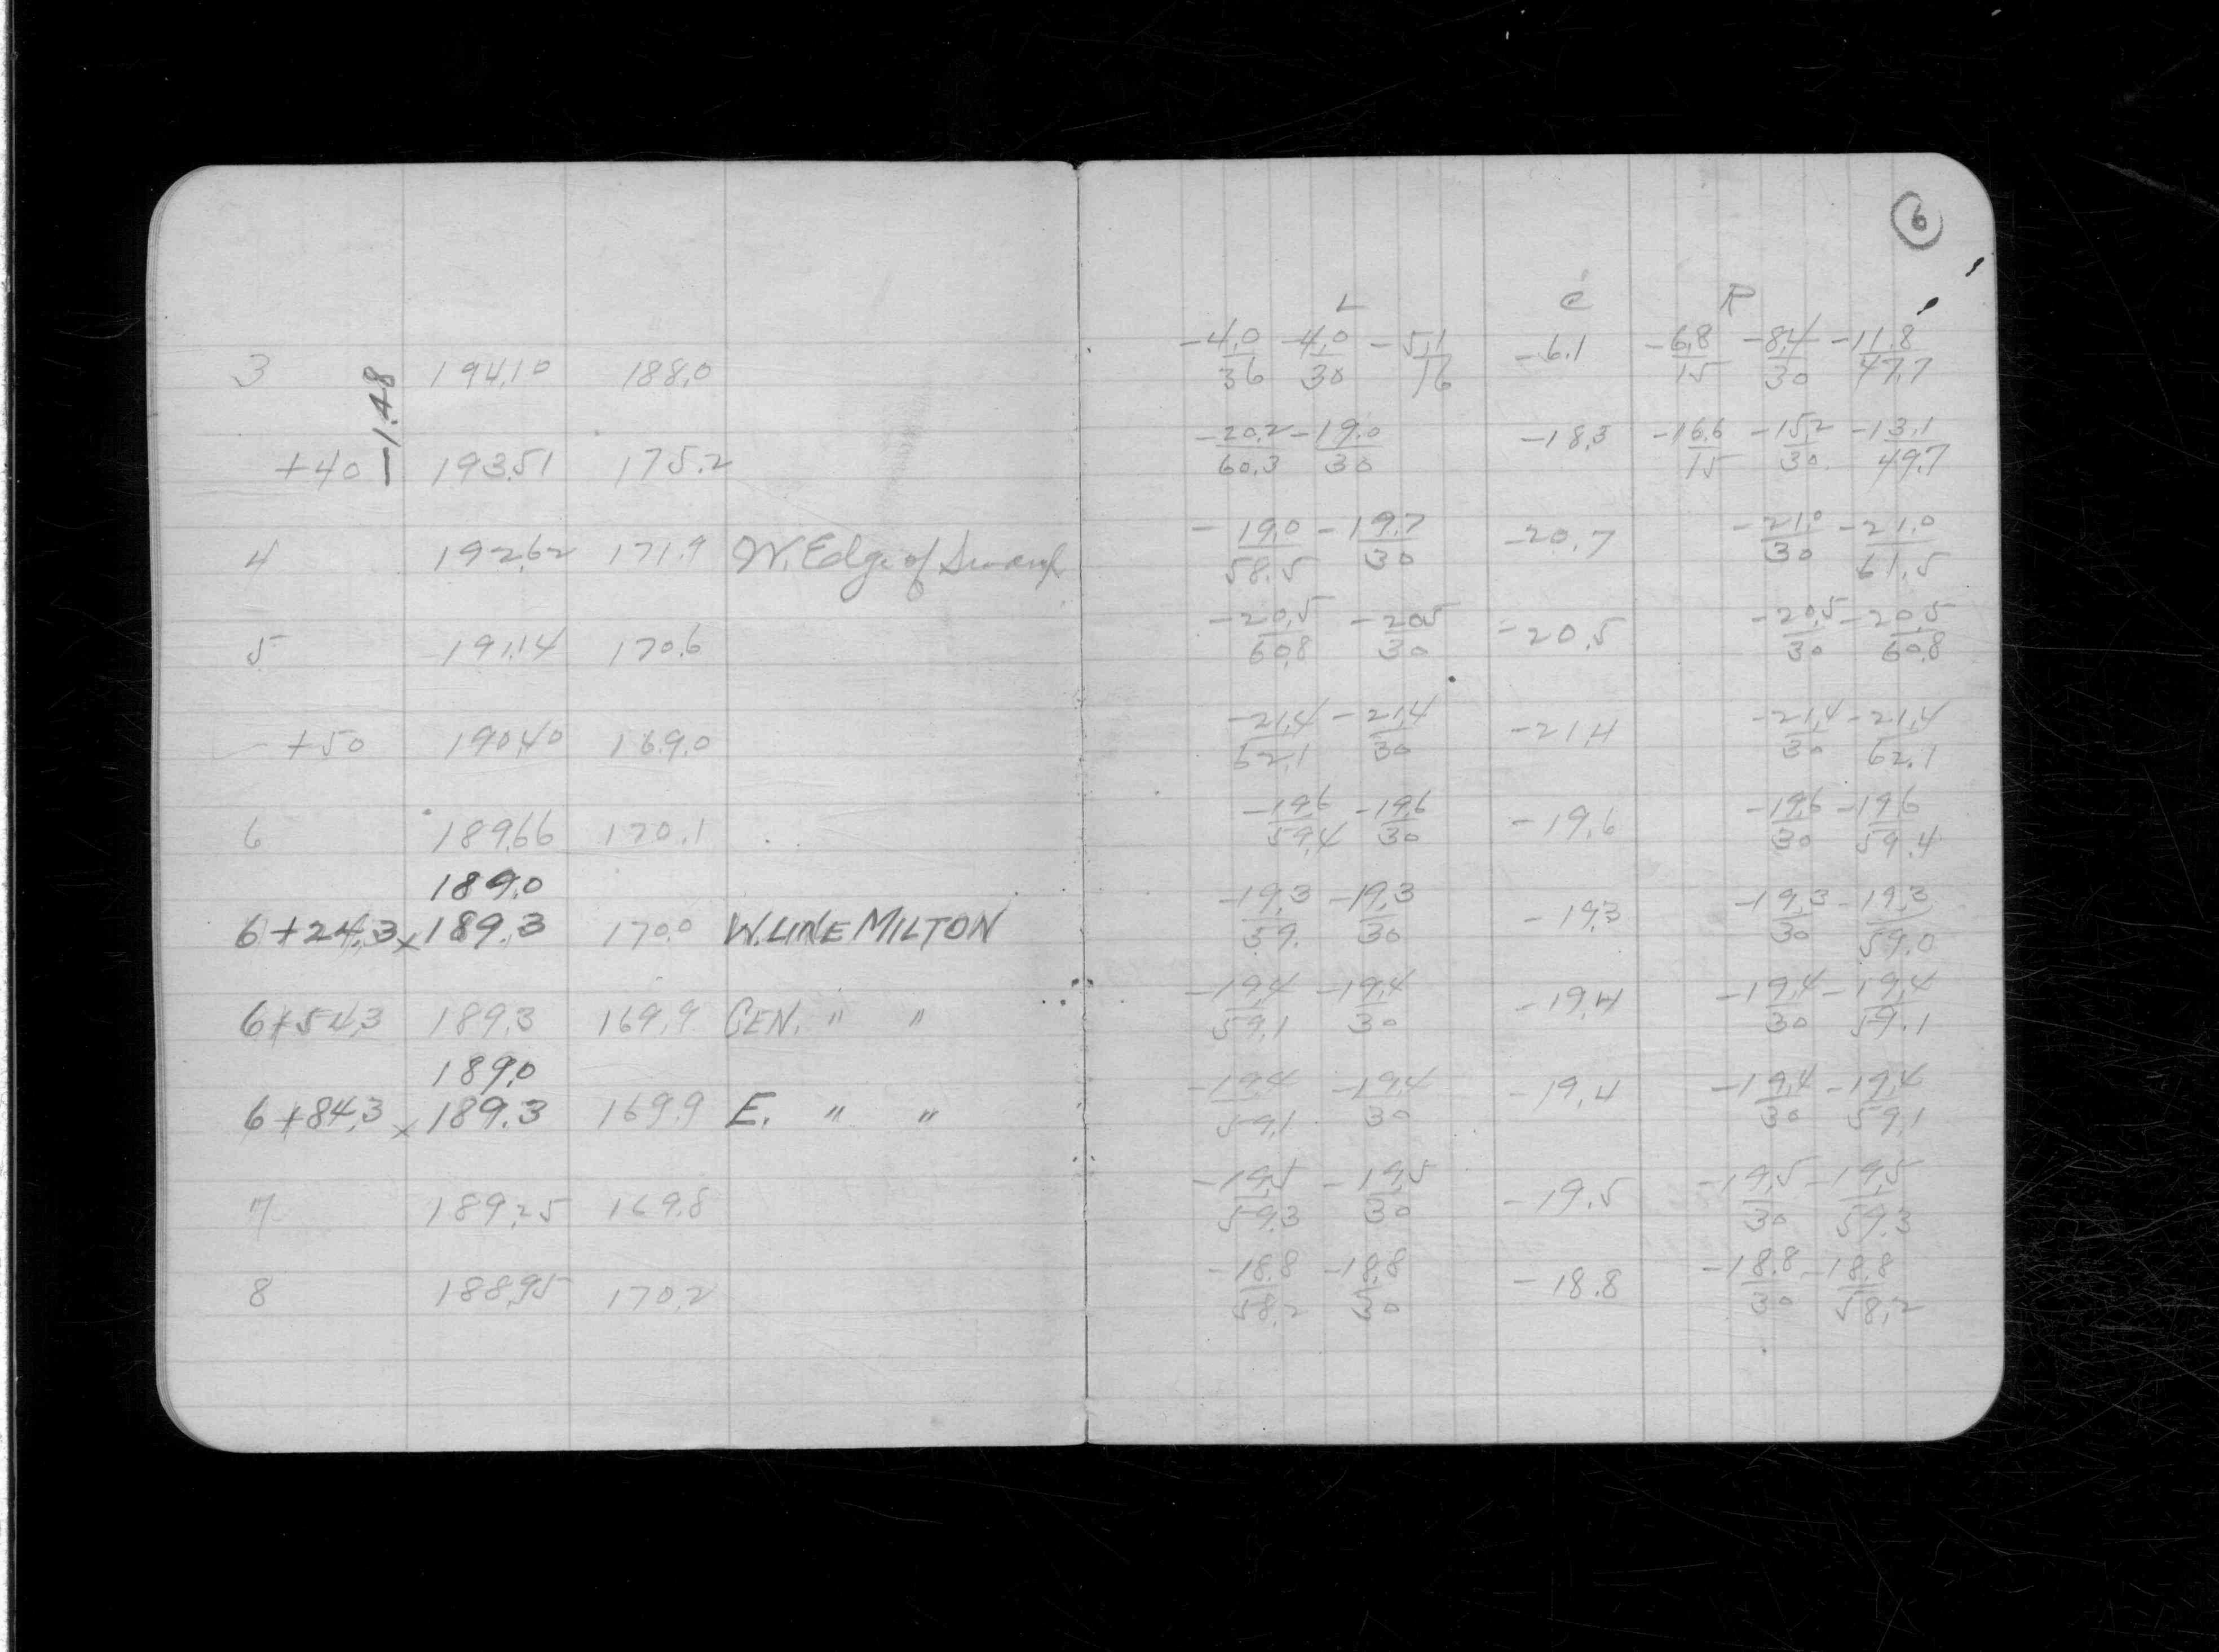 6
L C R
-4.0/36 -4.0/30 -5.1/16 -6.1 -6.8/15 -8.4/30 -11.8/47.7
3 194.10 188.0
-1.48
-20.2/60.3 -19.0/30 -18.3 -16.6/15 -15.2/30 -13.1/49.7
+40 193.51 175.2
-19.0/58.5 -19.7/30 -20.7 -21.0/30 -21.0/61.5
4 192.62 171.9 W. Edge of Swamp
-20.5/60.8 -20.5/30 -20.5 -20.5/30 -20.5/60.8
5 191.14 170.6
-21.4/62.1 -21.4/30 -21.4 -21.4/30 -21.4/62.1
+50 190.40 169.0
-19.6/59.4 -19.6/30 -19.6 -19.6/30 -19.6/59.4
6 189.66 170.1
189.0
-19.3/59. -19.3/30 -19.3 -19.3/30 -19.3/59.0
6+24.3 x 189.3 170.0 W. LINE MILTON
-19.4/59.1 -19.4/30 -19.4 -19.4/30 -19.4/59.1
6+54.3 189.3 169.9 CEN. " "
189.0
-19.4/59.1 -19.4/30 -19.4 -19.4/30 -19.4/59.1
6+84.3 x 189.3 169.9 E. " "
-19.5/59.3 -19.5/30 -19.5 -19.5/30 -19.5/59.3
7 189.25 169.8
-18.8/58.2 -18.8/30 -18.8 -18.8/30 -18.8/58.2
8 188.95 170.2